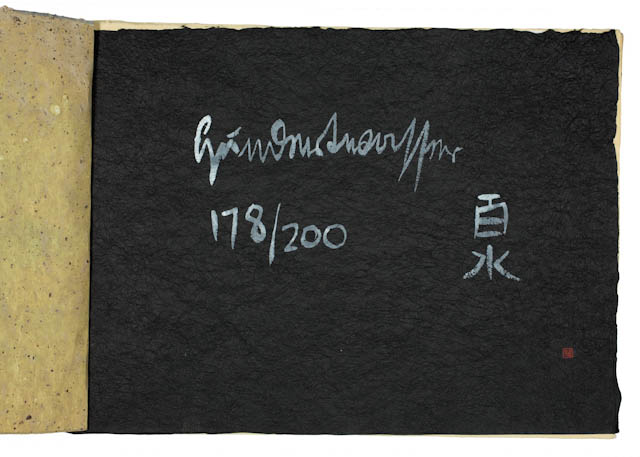 Hundertwasser
178/200
百水